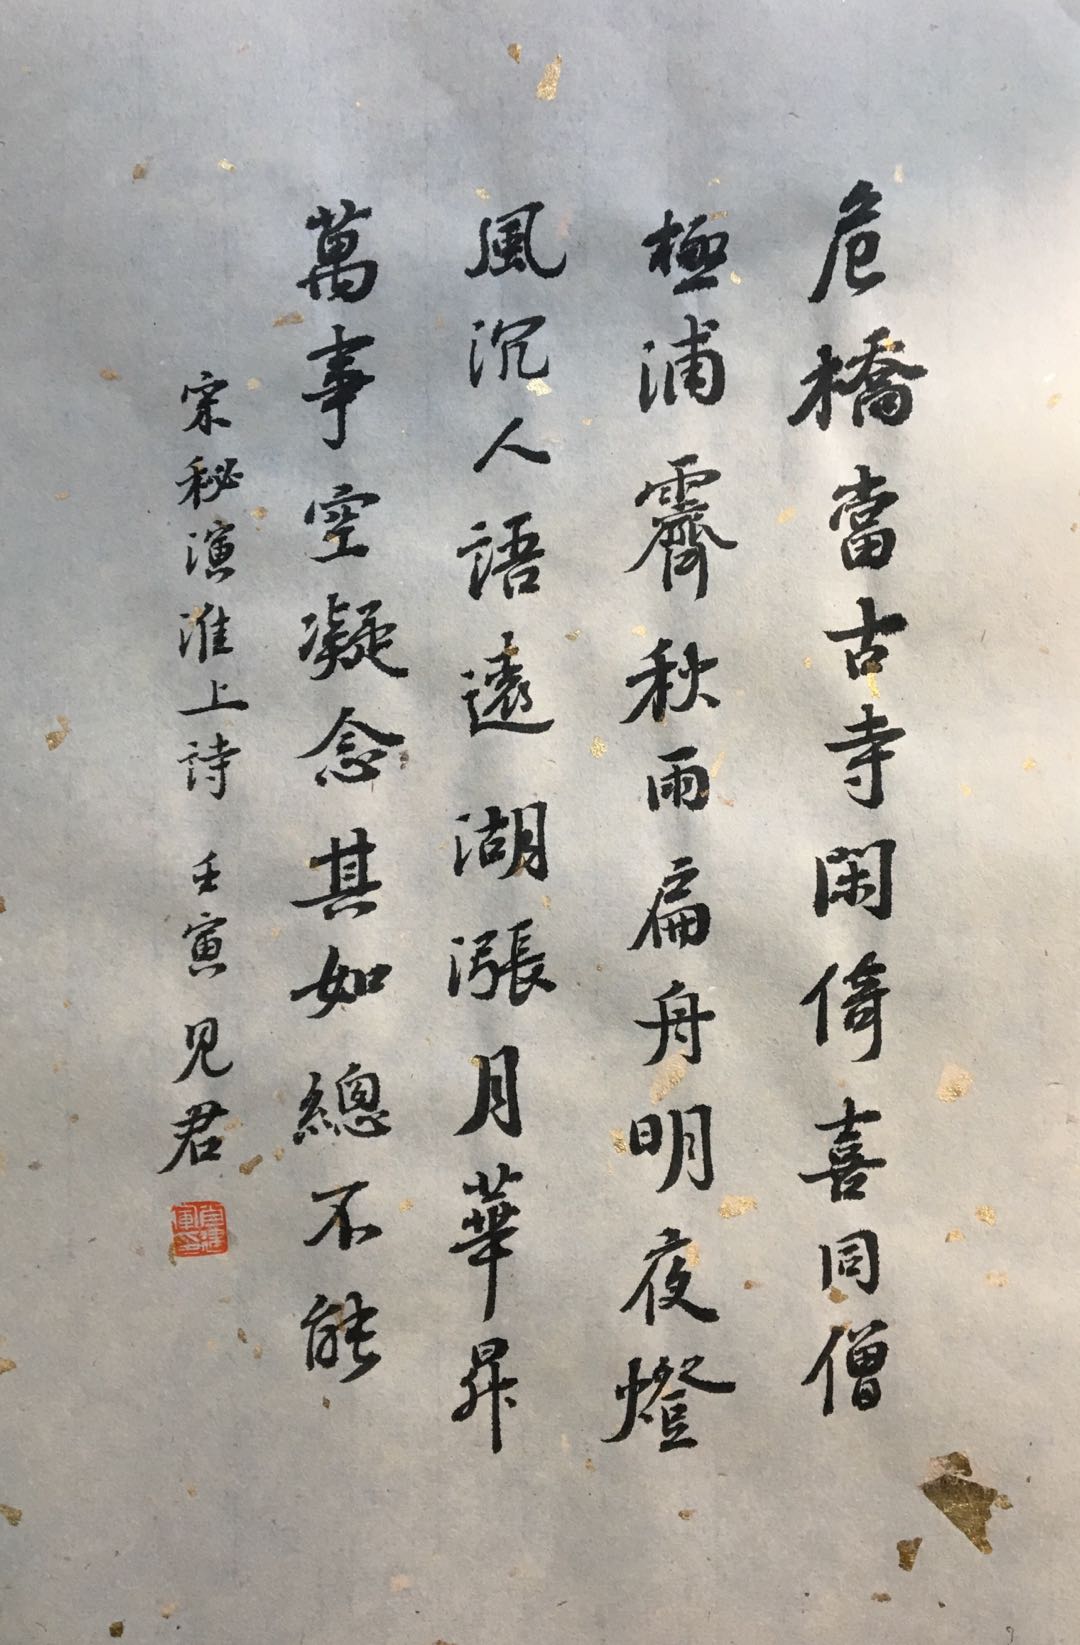 危橋當古寺閑倚喜同僧
極浦霽秋雨扁舟明夜燈
風沉人語遠湖漲月華昇
萬事空凝念其如總不能
宋秘演淮上詩 壬寅 見君